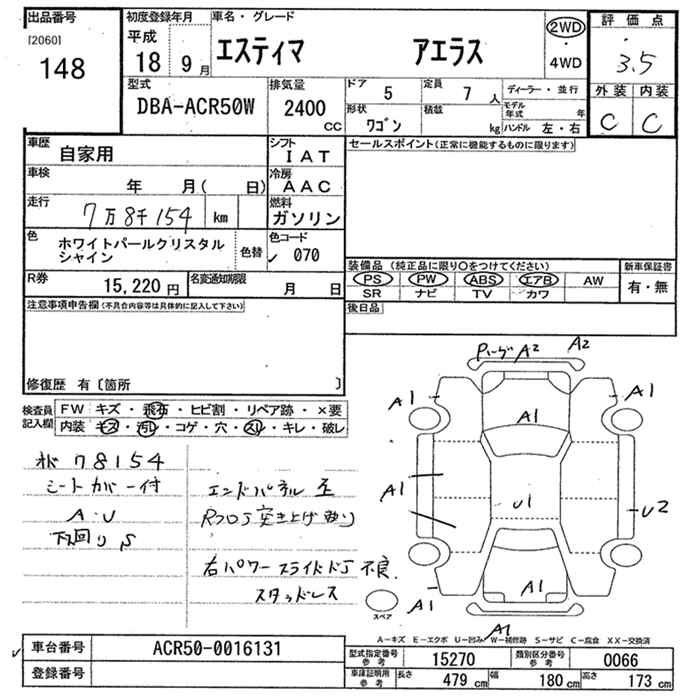 出品番号
[2060]
148
初度登録年月
平成
18 9 月
車名・グレード
エスティマ アエラス
2WD
・
4WD
評価点
3.5
外装 内装
C C
型式
DBA-ACR50W
排気量
2400
CC
ドア 5
定員 7 人
形状 ワゴン
積載 kg
ディーラー・並行
モデル年式 年
ハンドル 左・右
車歴 自家用
シフト IAT
車検 年 月( 日)
冷房 AAC
走行 7万8千154 km
燃料 ガソリン
色 ホワイトパールクリスタル
シャイン
色替
色コード
✓ 070
R券 15,220 円
名変通知期限 月 日
セールスポイント(正常に機能するものに限ります)
装備品 (純正品に限り○をつけてください)
PS PW ABS エアB AW
SR ナビ TV カワ
新車保証書
有・無
後日品
注意事項申告欄(不具合内容等は具体的に記入して下さい)
修復歴 有〔箇所 〕
検査員記入欄
FW キズ・飛石・ヒビ割・リペア跡・×要
内装 キズ・汚レ・コゲ・穴・スレ・キレ・破レ
78154
シートカバー付
A・U
下回りS
エンドパネル
突き上げ
右パワースライドドア不良
スタッドレス
A2
A2
A1
A1
A1
A1
U1
U2
A1
A1
A1
スペア
A-キズ E-エクボ U-凹み W-補修跡 S-サビ C-腐食 XX-交換済
✓ 車台番号 ACR50-0016131
登録番号
型式指定番号
参考
15270
類別区分番号
参考
0066
車庫証明用
参考
長さ 479 cm
幅 180 cm
高さ 173 cm